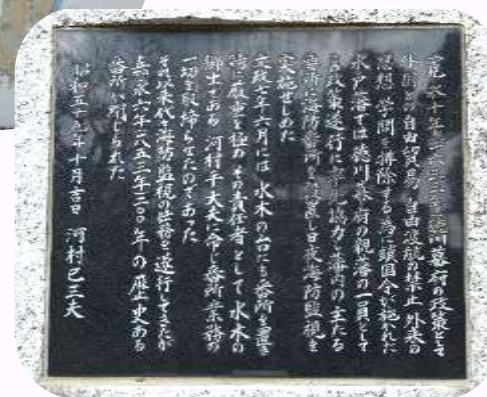 寛永十年（一六三三年）徳川幕府の政策として
外国との自由貿易 自由渡航の禁止 外来の
思想 学問を排除する為に鎖国令が施かれた
水戸藩では徳川幕府の親藩の一員として
政策遂行に 協力 藩内の主たる
海防番所を設置し日夜海防監視を
実施せしめた
文政七年六月には 水木の 山にも番所を置き
その責任者として 水木の
郷士である 河村平大夫に命じ番所業務の
一切を取締らせたのであった
それ以来代々海防監視の任務を遂行してきたが
嘉永六年（一八五三年）二〇〇年の歴史ある
番所は閉じられた
昭和五十九年十月吉日 河村巳三夫